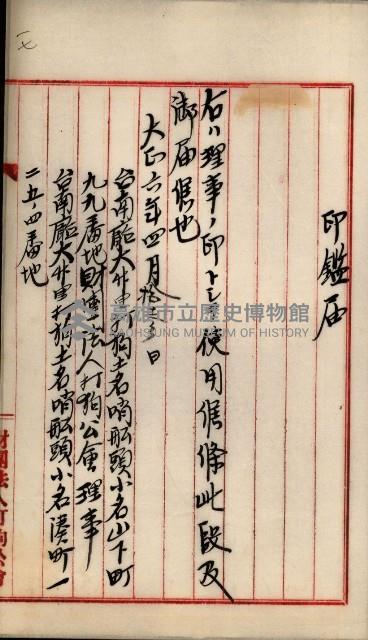 印鑑届
右ハ理事ノ印トシ使用候條此段及
御届候也
大正六年四月拾 日
台南廳大竹里打狗土名哨船頭小名山下町
九九番地財團法人打狗公會理事
台南廳大竹里打狗土名哨船頭小名湊町一
二五ノ四番地
財團法人打狗公會
一七
高雄市立歷史博物館
KAOHSIUNG MUSEUM OF HISTORY